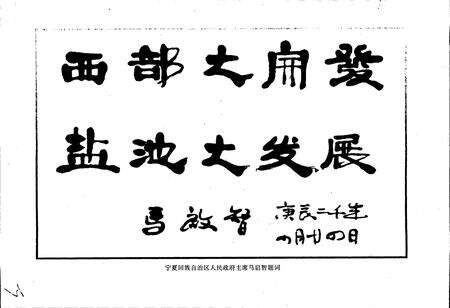 西部大开發
盐池大发展
马啟智 庚辰二千年
四月廿四日
宁夏回族自治区人民政府主席马启智题词